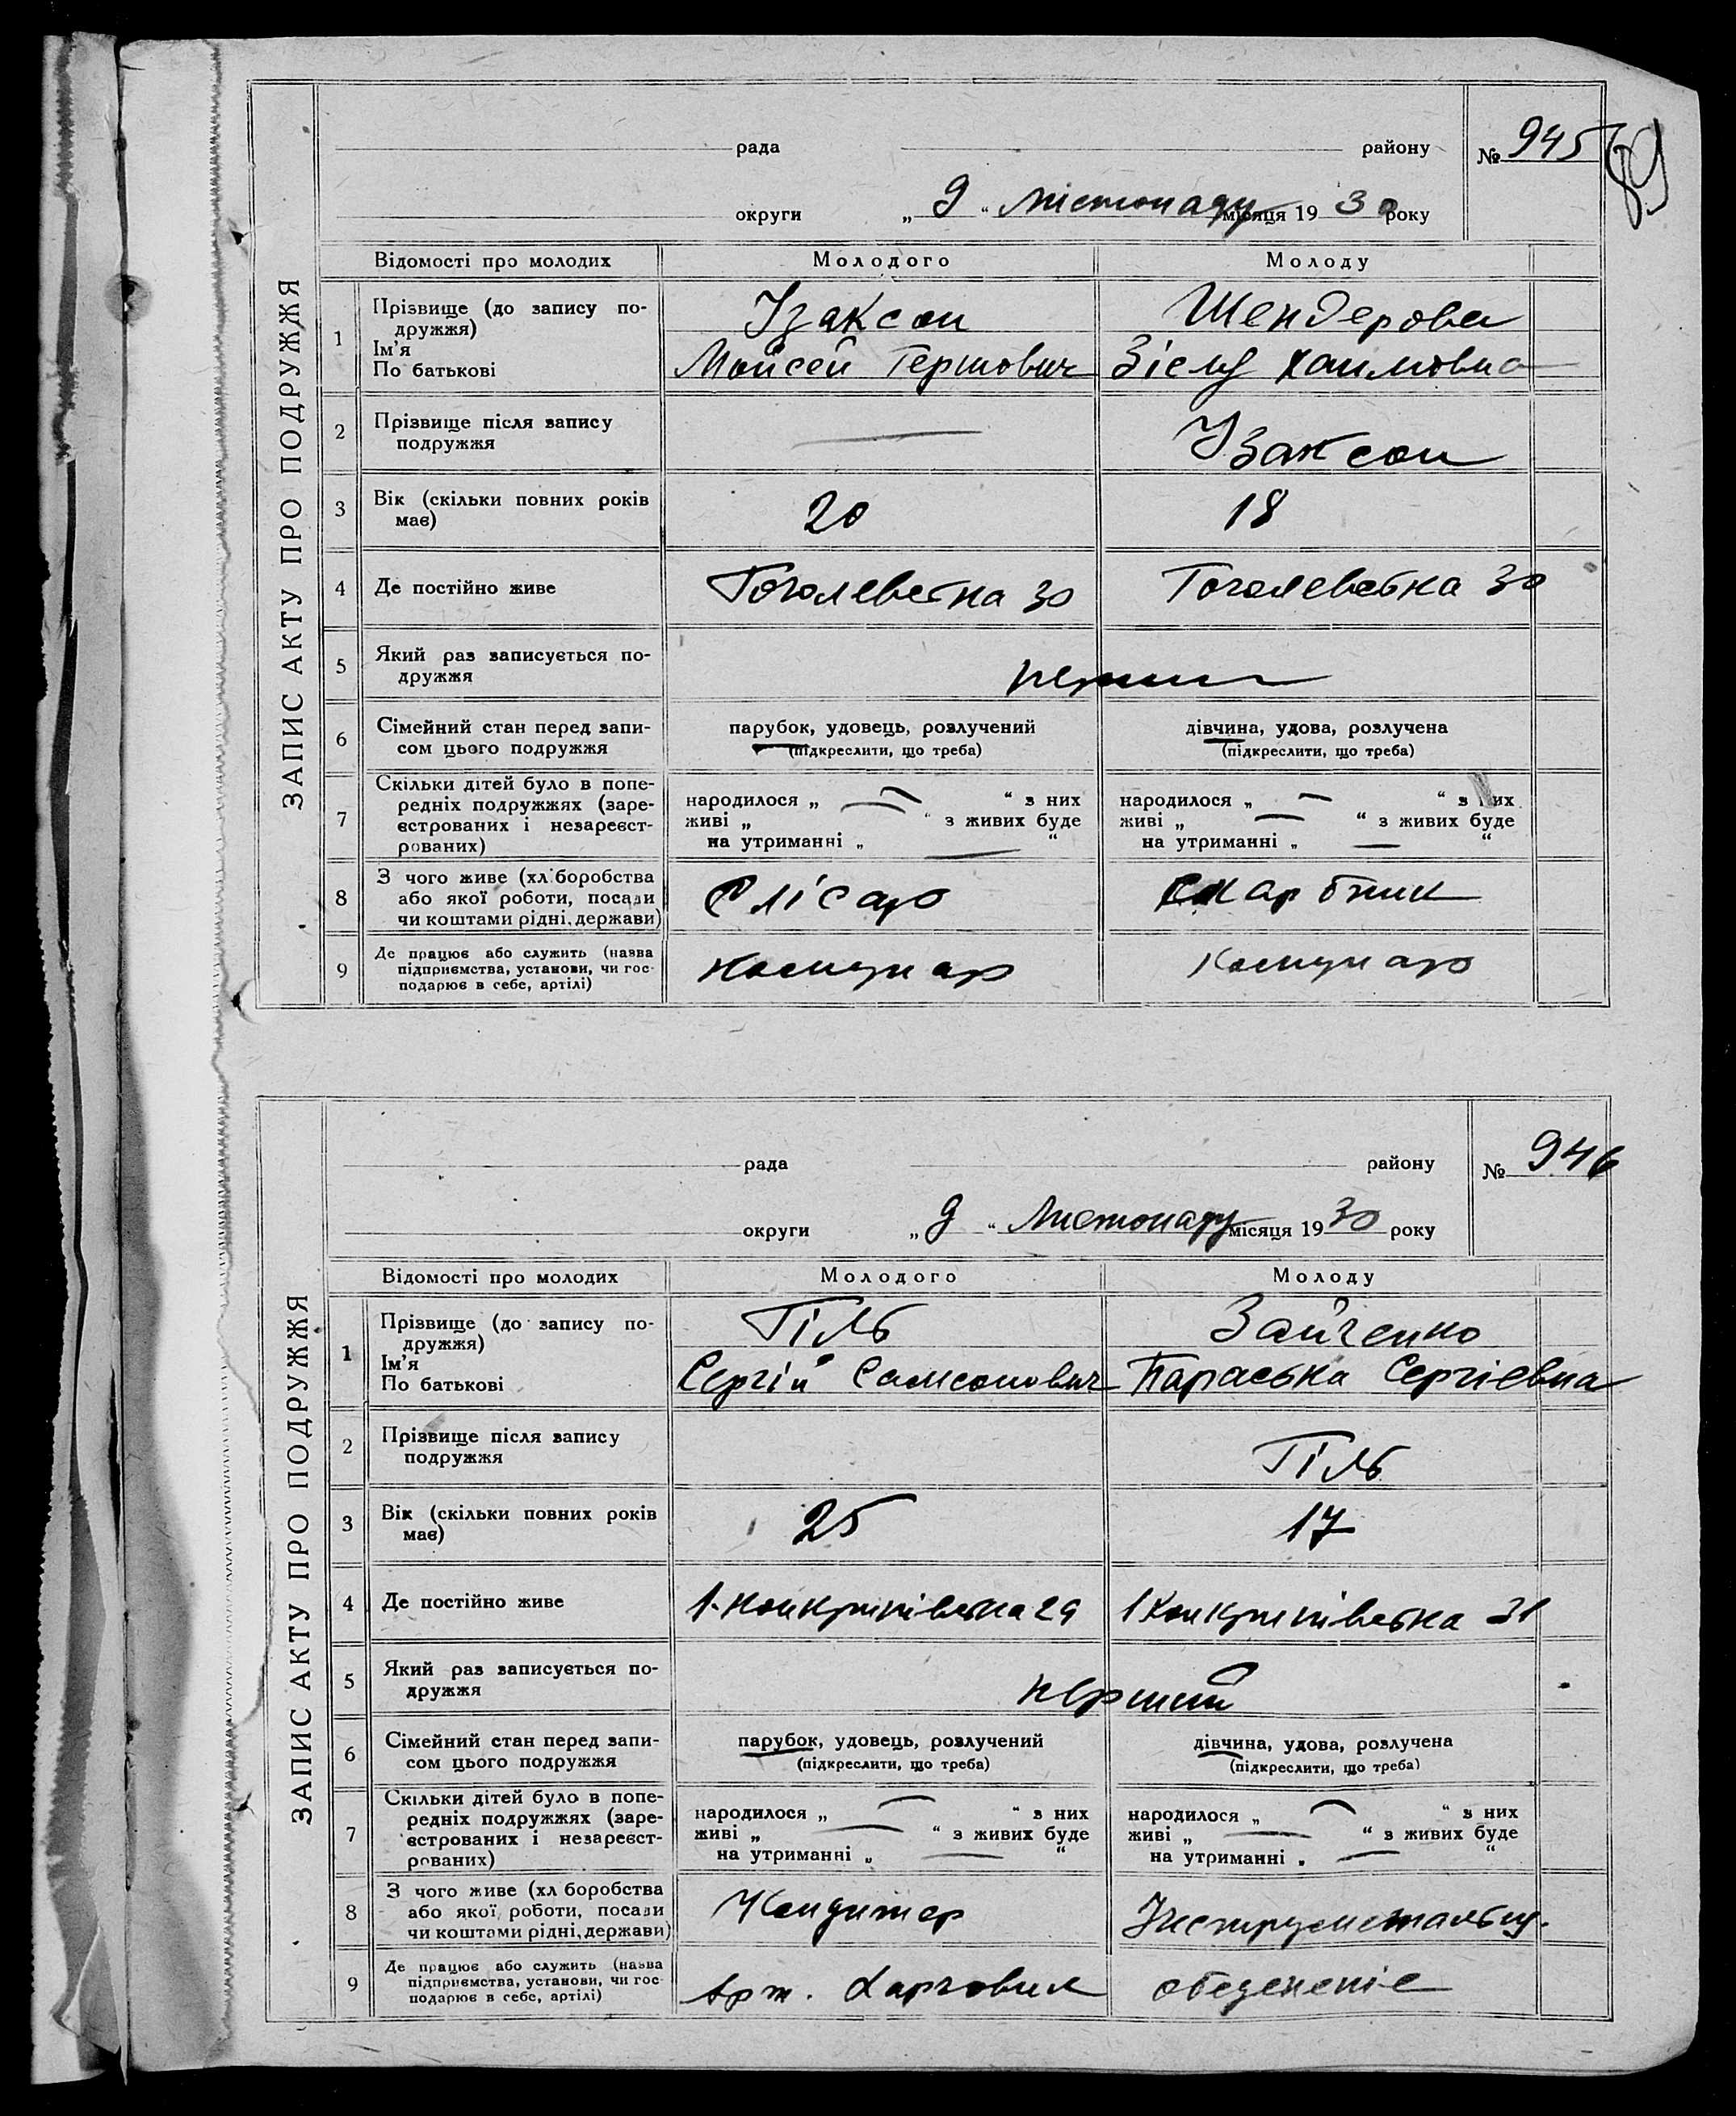 89
ЗАПИС АКТУ ПРО ПОДРУЖЖЯ
рада району № 945
округи „ 9 “ лістопаду місяця 19 30 року
Відомості про молодих Молодого Молоду
1 Прізвище (до запису по-
дружжя)
Ім'я
По батькові
Ізаксон
Мойсей Гершович
Шендерова
Хаимовна
2 Прізвище після запису
подружжя
— Ізаксон
3 Вік (скільки повних років
має)
20 18
4 Де постійно живе Гоголевська 30 Гоголевська 30
5 Який раз записується по-
дружжя
6 Сімейний стан перед запи-
сом цього подружжя
парубок, удовець, розлучений
(підкреслити, що треба)
дівчина, удова, розлучена
(підкреслити, що треба)
7 Скільки дітей було в попе-
редніх подружжях (заре-
єстрованих і незареєст-
рованих)
народилося „ — “ з них
живі „ — “ з живих буде
на утриманні „ — “
народилося „ — “ з них
живі „ — “ з живих буде
на утриманні „ — “
8 З чого живе (хл боробства
або якої роботи, посади
чи коштами рідні, держави)
Слісар Скарбник
9 Де працює або служить (назва
підприємства, установи, чи гос-
подарює в себе, артілі)
Комунар Комунар
ЗАПИС АКТУ ПРО ПОДРУЖЖЯ
рада району № 946
округи „ 9 “ Листопаду місяця 19 30 року
Відомості про молодих Молодого Молоду
1 Прізвище (до запису по-
дружжя)
Ім'я
По батькові
Гіль
Сергій Самсонович
Зайченко
Параська Сергієвна
2 Прізвище після запису
подружжя
Гіль
3 Вік (скільки повних років
має)
25 17
4 Де постійно живе 29 31
5 Який раз записується по-
дружжя
перший
6 Сімейний стан перед запи-
сом цього подружжя
парубок, удовець, розлучений
(підкреслити, що треба)
дівчина, удова, розлучена
(підкреслити, що треба)
7 Скільки дітей було в попе-
редніх подружжях (заре-
єстрованих і незареєст-
рованих)
народилося „ — “ з них
живі „ — “ з живих буде
на утриманні „ — “
народилося „ — “ з них
живі „ — “ з живих буде
на утриманні „ — “
8 З чого живе (хл боробства
або якої роботи, посади
чи коштами рідні, держави)
Кондитер
9 Де працює або служить (назва
підприємства, установи, чи гос-
подарює в себе, артілі)
Арт. Харчовик